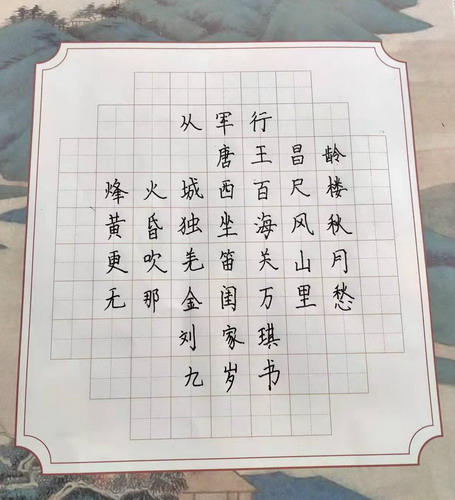 从军行
唐王昌龄
烽火城西百尺楼
黄昏独坐海风秋
更吹羌笛关山月
无那金闺万里愁
刘家琪
九岁书